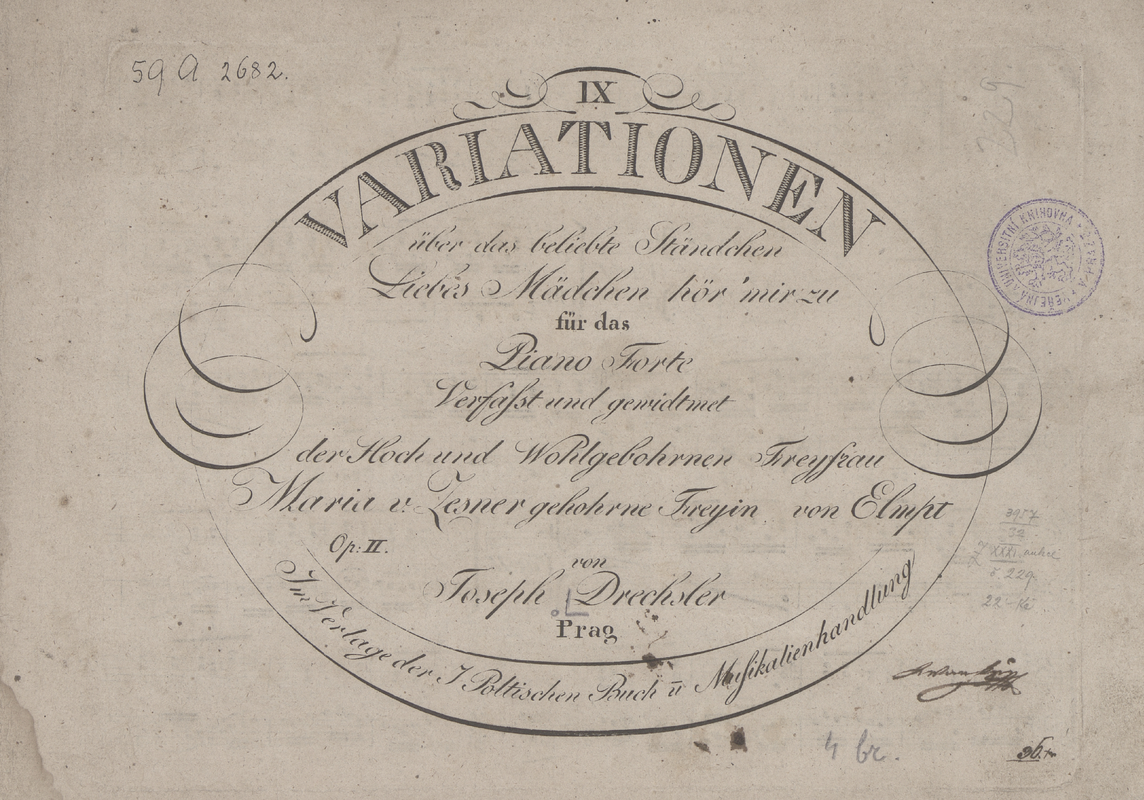 59 A 2682.
229
IX
VARIATIONEN
über das beliebte Ständchen
Liebes Mädchen hör' mir zu
für das
Piano Forte
Verfaſst und gewidtmet
der Hoch und Wohlgebohrnen Freyfrau
Maria v: Zesner gebohrne Freyin von Elmpt
Op: II.
von
Joseph Drechsler
Prag
Im Verlage der J Poltischen Buch ū Muſikalienhandlung
VEŘEJNÁ A UNIVERSITNÍ KNIHOVNA
22
229
4 kr.